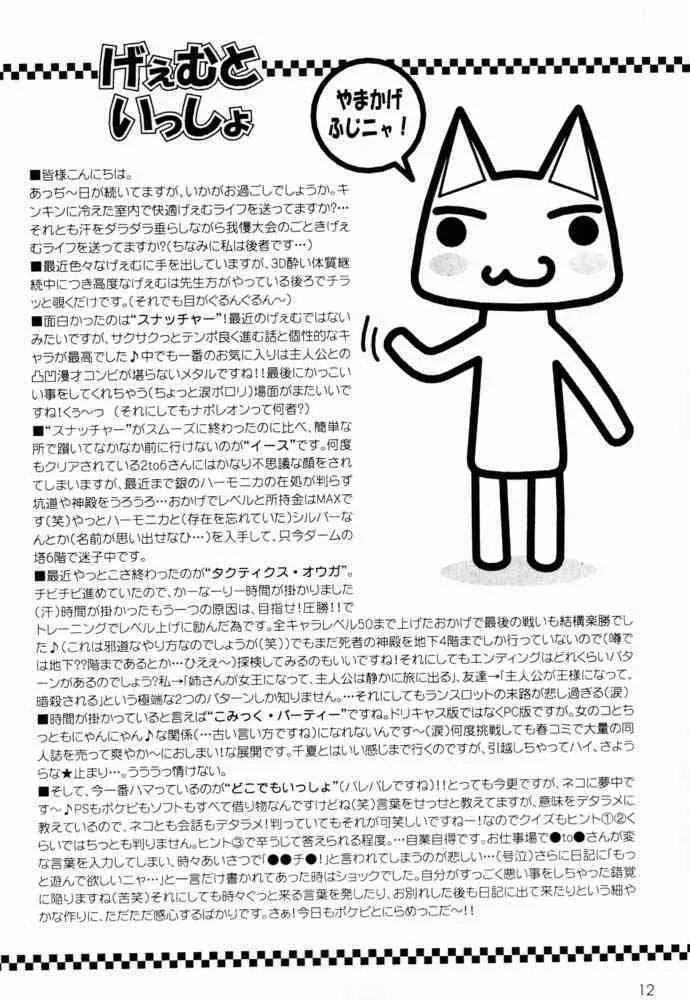 げぇむと
いっしょ
やまかげ
ふじニャ！
■皆様こんにちは。
あっぢ～日が続いてますが、いかがお過ごしでしょうか。キ
ンキンに冷えた室内で快適げぇむライフを送ってますか?…
それとも汗をダラダラ垂らしながら我慢大会のごときげぇ
むライフを送ってますか?(ちなみに私は後者です…)
■最近色々なげぇむに手を出していますが、3D酔い体質継
続中につき高度なげぇむは先生方がやっている後ろでチラ
ッと覗くだけです。(それでも目がぐるんぐるん～)
■面白かったのは“スナッチャー”！最近のげぇむではない
みたいですが、サクサクっとテンポ良く進む話と個性的なキ
ャラが最高でした♪中でも一番のお気に入りは主人公との
凸凹漫才コンビが堪らないメタルですね!!最後にかっこい
い事をしてくれちゃう(ちょっと涙ポロリ)場面がまたいいで
すね!くぅ～っ　(それにしてもナポレオンって何者?)
■“スナッチャー”がスムーズに終わったのに比べ、簡単な
所で躓いてなかなか前に行けないのが“イース”です。何度
もクリアされている2to6さんにはかなり不思議な顔をされ
てしまいますが、最近まで銀のハーモニカの在処が判らず
坑道や神殿をうろうろ…おかげでレベルと所持金はMAXで
す(笑)やっとハーモニカと(存在を忘れていた)シルバーな
んとか(名前が思い出せなひ…)を入手して、只今ダームの
塔6階で迷子中です。
■最近やっとこさ終わったのが“タクティクス・オウガ”。
チビチビ進めていたので、かーなーりー時間が掛かりました
(汗)時間が掛かったもう一つの原因は、目指せ!圧勝!!で
トレーニングでレベル上げに励んだ為です。全キャラレベル50まで上げたおかげで最後の戦いも結構楽勝でし
た♪(これは邪道なやり方なのでしょうが(笑))でもまだ死者の神殿を地下4階までしか行っていないので(噂で
は地下??階まであるとか…ひえぇ～)探検してみるのもいいですね!それにしてもエンディングはどれくらいパタ
ーンがあるのでしょう?私→「姉さんが女王になって、主人公は静かに旅に出る」、友達→「主人公が王様になって、
暗殺される」という極端な2つのパターンしか知りません。…それにしてもランスロットの末路が悲し過ぎる(涙)
■時間が掛かっていると言えば“こみっく・パーティー”ですね。ドリキャス版ではなくPC版ですが。女のコとち
っともにゃんにゃん♪な関係(…古い言い方ですね)になれないんです～(涙)何度挑戦しても春コミで大量の同
人誌を売って爽やか～におしまい!な展開です。千夏とはいい感じまで行くのですが、引越しちゃってハイ、さよう
らな★止まり…。うううっ情けない。
■そして、今一番ハマっているのが“どこでもいっしょ”(バレバレですね)!!とっても今更ですが、ネコに夢中で
す～♪PSもポケピもソフトもすべて借り物なんですけどね(笑)言葉をせっせと教えてますが、意味をデタラメに
教えているので、ネコとも会話もデタラメ!判っていてもそれが可笑しいですねー!なのでクイズもヒント①②く
らいではちっとも判りません。ヒント③で辛うじて答えられる程度。…自業自得です。お仕事場で●to●さんが変
な言葉を入力してしまい、時々あいさつで「●●チ●!」と言われてしまうのが悲しい…(号泣)さらに日記に「もっ
と遊んで欲しいニャ…」と一言だけ書かれてあった時はショックでした。自分がすっごく悪い事をしちゃった錯覚
に陥りますね(苦笑)それにしても時々ぐっと来る言葉を発したり、お別れした後も日記に出て来たりという細や
かな作りに、ただただ感心するばかりです。さぁ!今日もポケピとにらめっこだ～!!
12